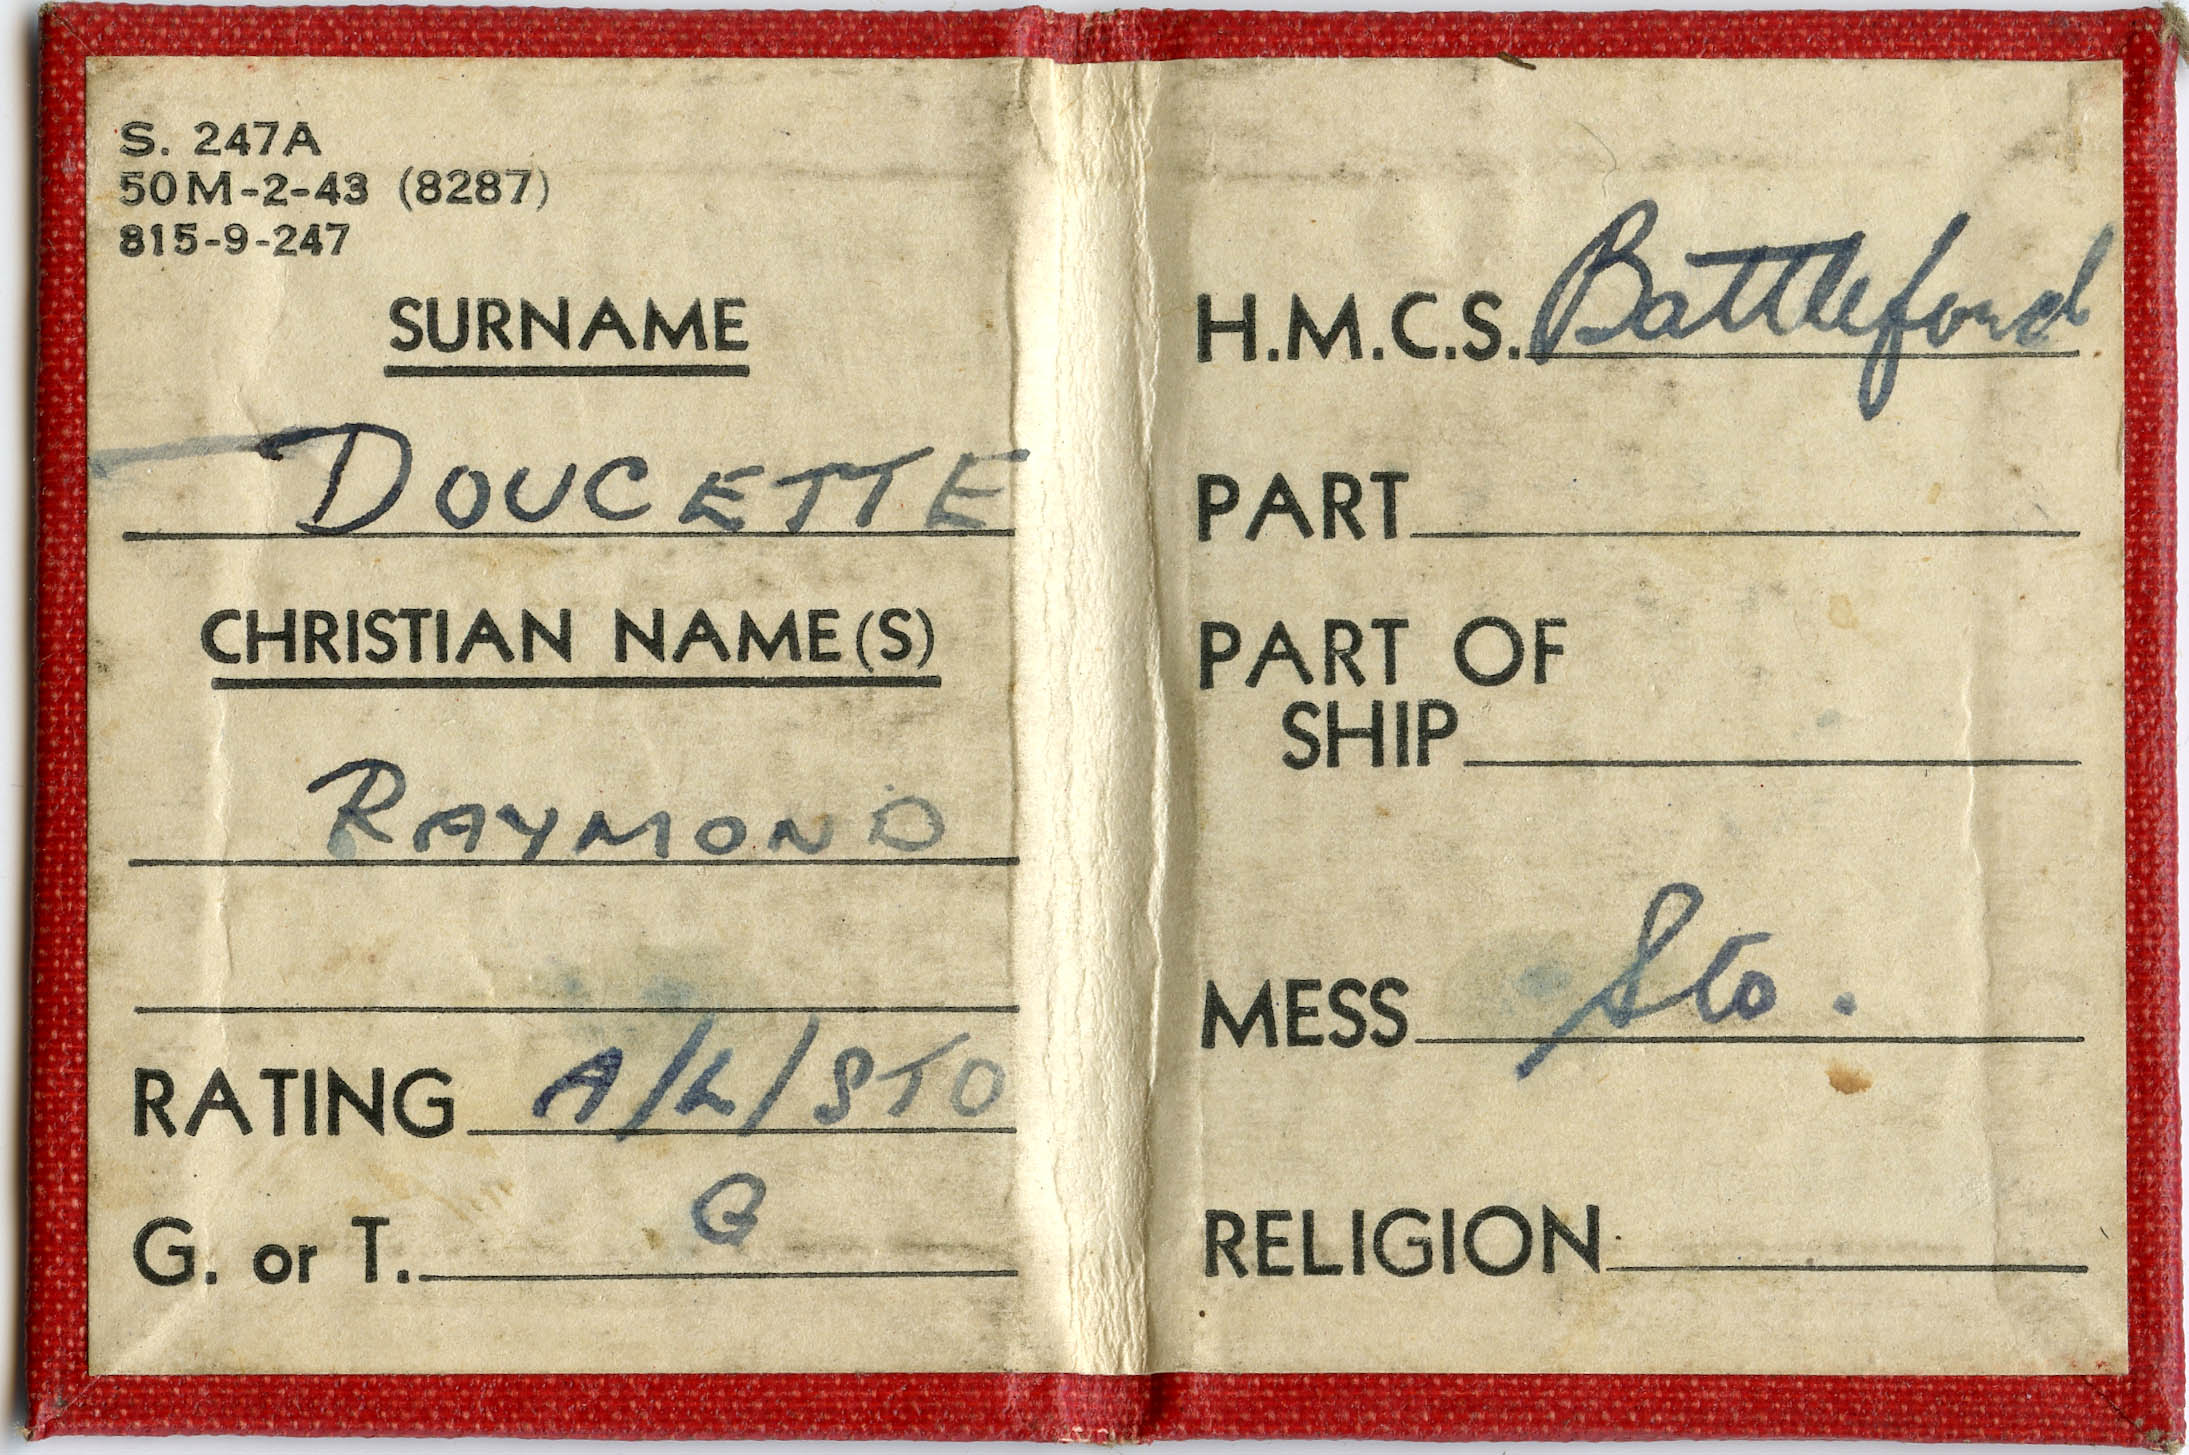 S. 247A
50M-2-43 (8287)
815-9-247
SURNAME
DOUCETTE
CHRISTIAN NAME(S)
RAYMOND
RATING A/L/STO
G. or T. G
H.M.C.S. Battleford
PART
PART OF
SHIP
MESS Sto.
RELIGION